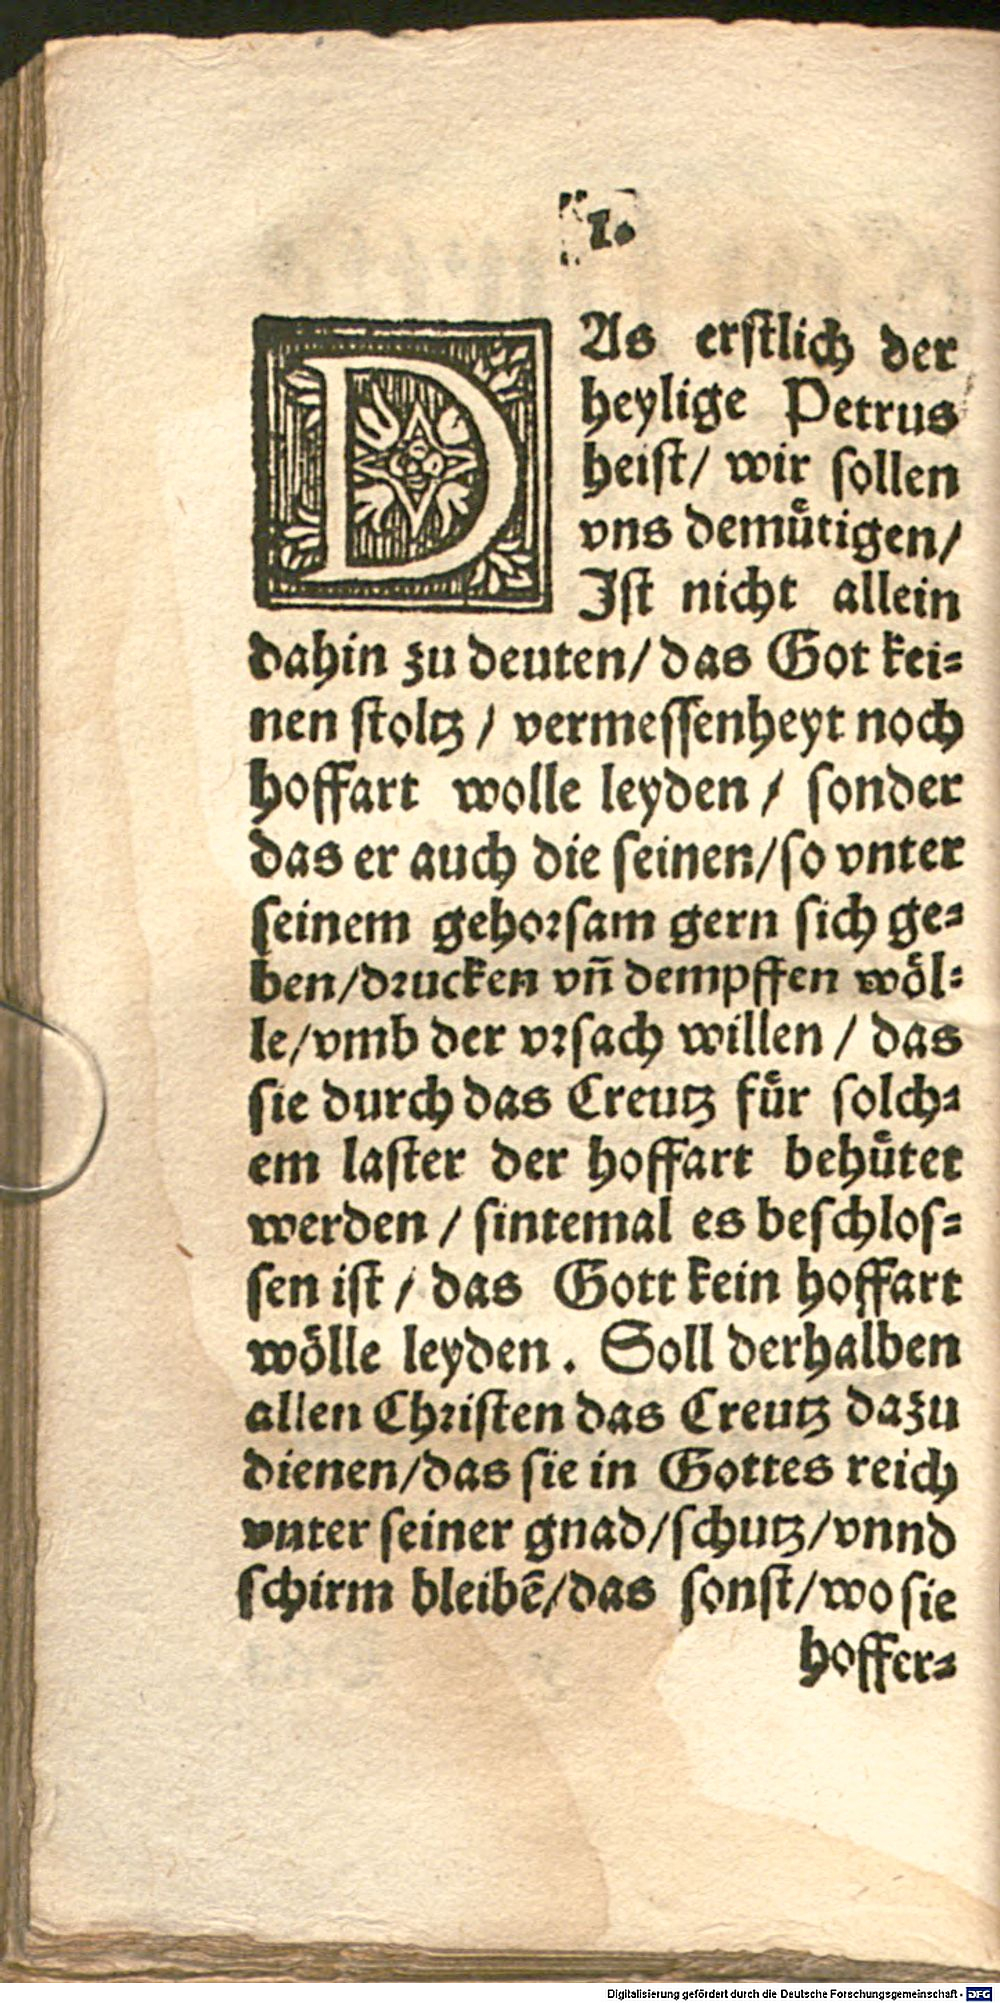 1.
DAs erstlich der
heylige Petrus
heist/ wir sollen
vns demuͤtigen/
Ist nicht allein
dahin zu deuten/ das Got kei⸗
nen stoltz / vermessenheyt noch
hoffart wolle leyden / sonder
das er auch die seinen/ so vnter
seinem gehorsam gern sich ge⸗
ben/ drucken vñ dempffen woͤl⸗
le/ vmb der vrsach willen / das
sie durch das Creutz fuͤr solch⸗
em laster der hoffart behuͤtet
werden / sintemal es beschlos⸗
sen ist / das Gott kein hoffart
woͤlle leyden. Soll derhalben
allen Christen das Creutz dazu
dienen/ das sie in Gottes reich
vnter seiner gnad/ schutz/ vnnd
schirm bleibē/ das sonst/ wo sie
hoffer⸗
Digitalisierung gefördert durch die Deutsche Forschungsgemeinschaft - DFG